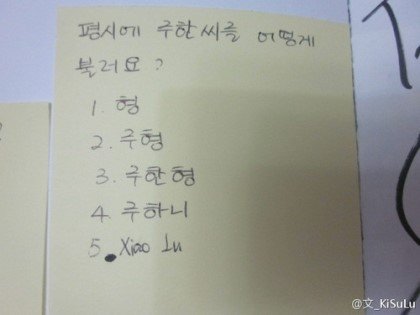 평시에 주한씨를 어떻게
불러요?
1. 형
2. 주형
3. 주한형
4. 주하니
5. Xiao Lu
@文_KiSuLu